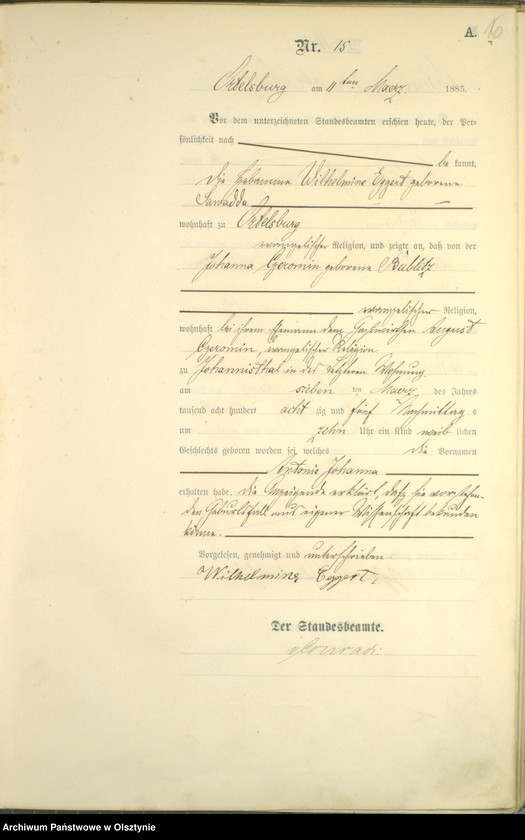 A. 16
Nr. 15
Ortelsburg am 11ten Maerz 1885.
Vor dem unterzeichneten Standesbeamten erschien heute, der Per-
sönlichkeit nach
be kannt,
die Hebamme Wilhelmine Eggert geborene
Sawadda
wohnhaft zu Ortelsburg
evangelischer Religion, und zeigte an, daß von der
Johanna Czeromin geborene Bublitz
evangelischer Religion,
wohnhaft bei ihrem Ehemann dem Gastwirthen August
Czeromin, evangelischer Religion
zu Johannisthal in der letzteren Wohnung
am sieben ten Maerz des Jahres
tausend acht hundert acht zig und fünf Nachmittag s
um zehn Uhr ein Kind weib lichen
Geschlechts geboren worden sei, welches die Vornamen
Antonie Johanna
erhalten habe. die Anzeigende erklärt, daß sie vorstehen-
den Geburtsfall aus eigener Wissenschaft bekunden
könne.
Vorgelesen, genehmigt und unterschrieben
Wilhelmine Eggert.
Der Standesbeamte.
Conradi
Archiwum Państwowe w Olsztynie